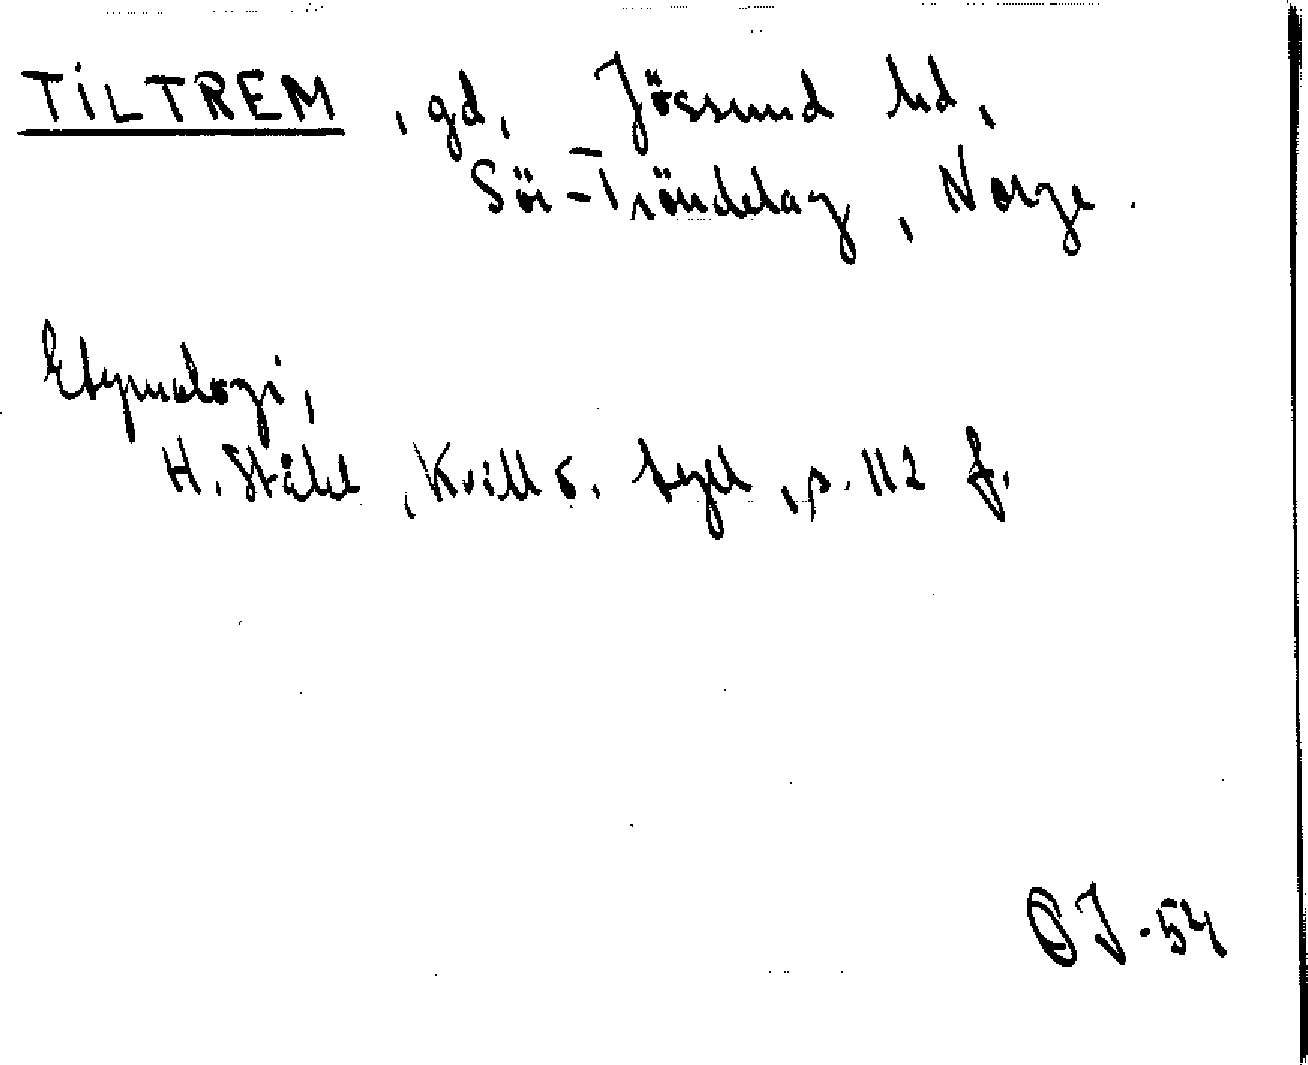 TILTREM, gd, Jössund hd,
Sör-Tröndelag, Norge.
Etymologi,
H. Ståhl, Kvill o. tegel, p. 112 f.
OJ-54